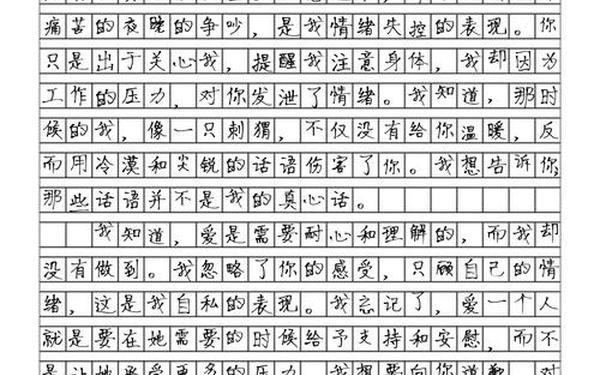 痛苦的夜晚的争吵，是我情绪失控的表现。你
只是出于关心我，提醒我注意身体，我却因为
工作的压力，对你发泄了情绪。我知道，那时
候的我，像一只刺猬，不仅没有给你温暖，反
而用冷漠和尖锐的话语伤害了你。我想告诉你，
那些话语并不是我的真心话。
我知道，爱是需要耐心和理解的，而我却
没有做到。我忽略了你的感受，只顾自己的情
绪，这是我自私的表现。我忘记了，爱一个人
就是要在她需要的时候给予支持和安慰，而不
是让她承受更多的压力。我想要向你道歉，对